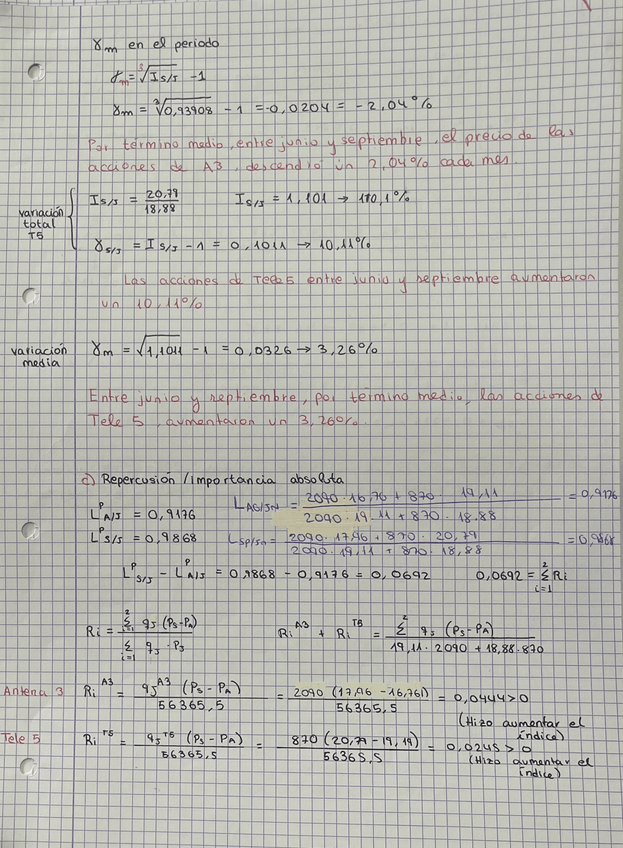 γm en el periodo
γm = ³√I s/J - 1
γm = ³√0,93908 - 1 = -0,0204 = -2,04%
Por término medio, entre junio y septiembre, el precio de las
acciones de A3, descendio un 2,04% cada mes.
variación total T5
I s/J = 20,79 / 18,88   I s/J = 1,101 → 110,1%
γ s/J = I s/J - 1 = 0,1011 → 10,11%
Las acciones de Tele5 entre junio y septiembre aumentaron
un 10,11%
variación media
γm = √1,1011 - 1 = 0,0326 → 3,26%
Entre junio y septiembre, por término medio, las acciones de
Tele 5, aumentaron un 3,26%.
c) Repercusión/importancia absoluta
L^P A/J = 0,9176   L AG/JN = 2090 · 16,76 + 870 · 19,11 / 2090 · 19.11 + 870 · 18,88 = 0,9176
L^P S/J = 0,9868   L SP/Jn = 2090 · 17,96 + 870 · 20,79 / 2090 · 19,11 + 870 · 18,88 = 0,9868
L^P S/J - L^P A/J = 0,9868 - 0,9176 = 0,0692   0,0692 = Σ² i=1 Ri
Ri = Σ² i=1 qJ (Ps-PA) / Σ i=1 qJ · PJ   Ri^A3 + Ri^T5 = Σ² qJ (Ps-PA) / 19,11 · 2090 + 18,88 · 870
Antena 3   Ri^A3 = qJ^A3 (Ps - PA) / 56365,5 = 2090 (17,96 - 16,76) / 56365,5 = 0,0444 > 0
(Hizo aumentar el índice)
Tele 5   Ri^T5 = qJ^T5 (Ps - PA) / 56365,5 = 870 (20,79 - 19,19) / 56365,5 = 0,0248 > 0
(Hizo aumentar el índice)